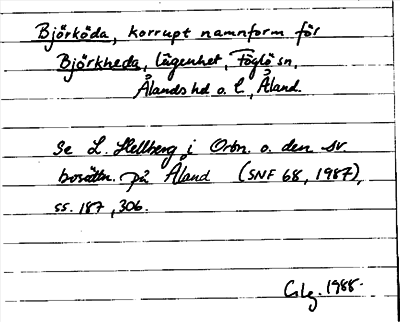 Björköda, korrupt namnform för
Björkheda, lägenhet, Föglö sn,
Ålands hd o. l, Åland.
Se L. Hellberg i Ortn. o. den sv
bosättn. på Åland (SNF 68, 1987),
ss. 187, 306.
Cslg. 1988.